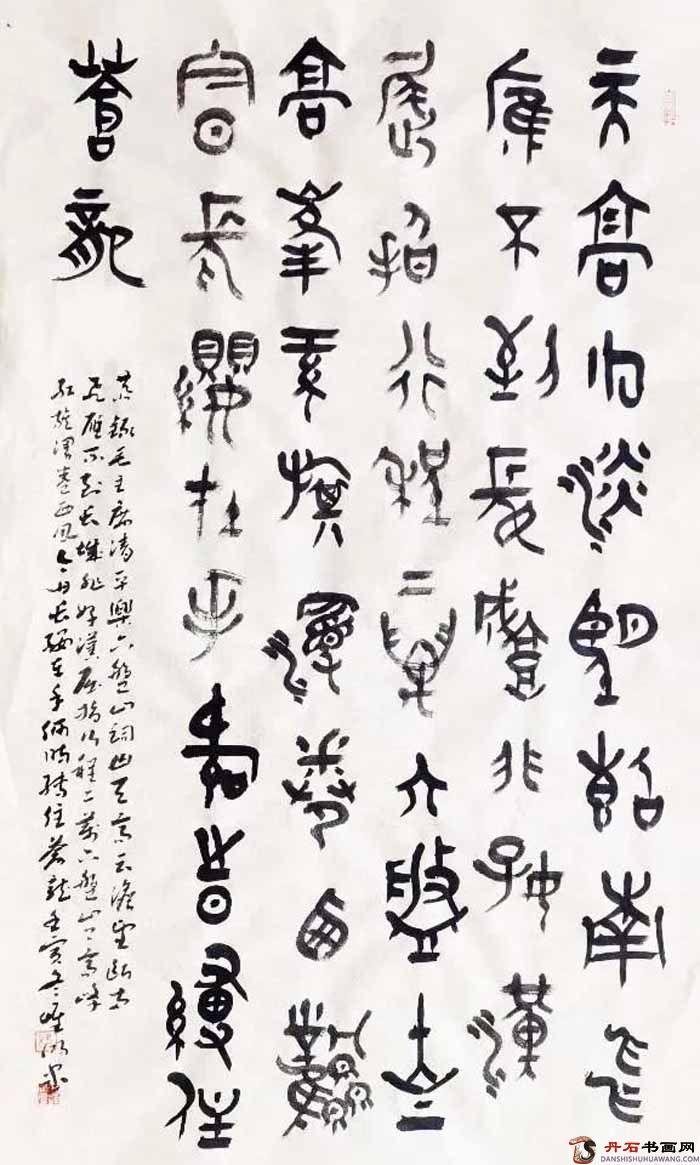 天高云淡望斷南飛
雁不到長城非好漢
屈指行程二萬六盤山上
高峯紅旗漫卷西風
今日長纓在手何時縛住
蒼龍
恭錄毛主席清平樂六盤山詞天高云淡望斷南
飛雁不到長城非好漢屈指行程二萬六盤山上高峰
紅旗漫卷西風今日長纓在手何時縛住蒼龍壬寅冬
丹石书画网
DANSHISHUHUAWANG.COM